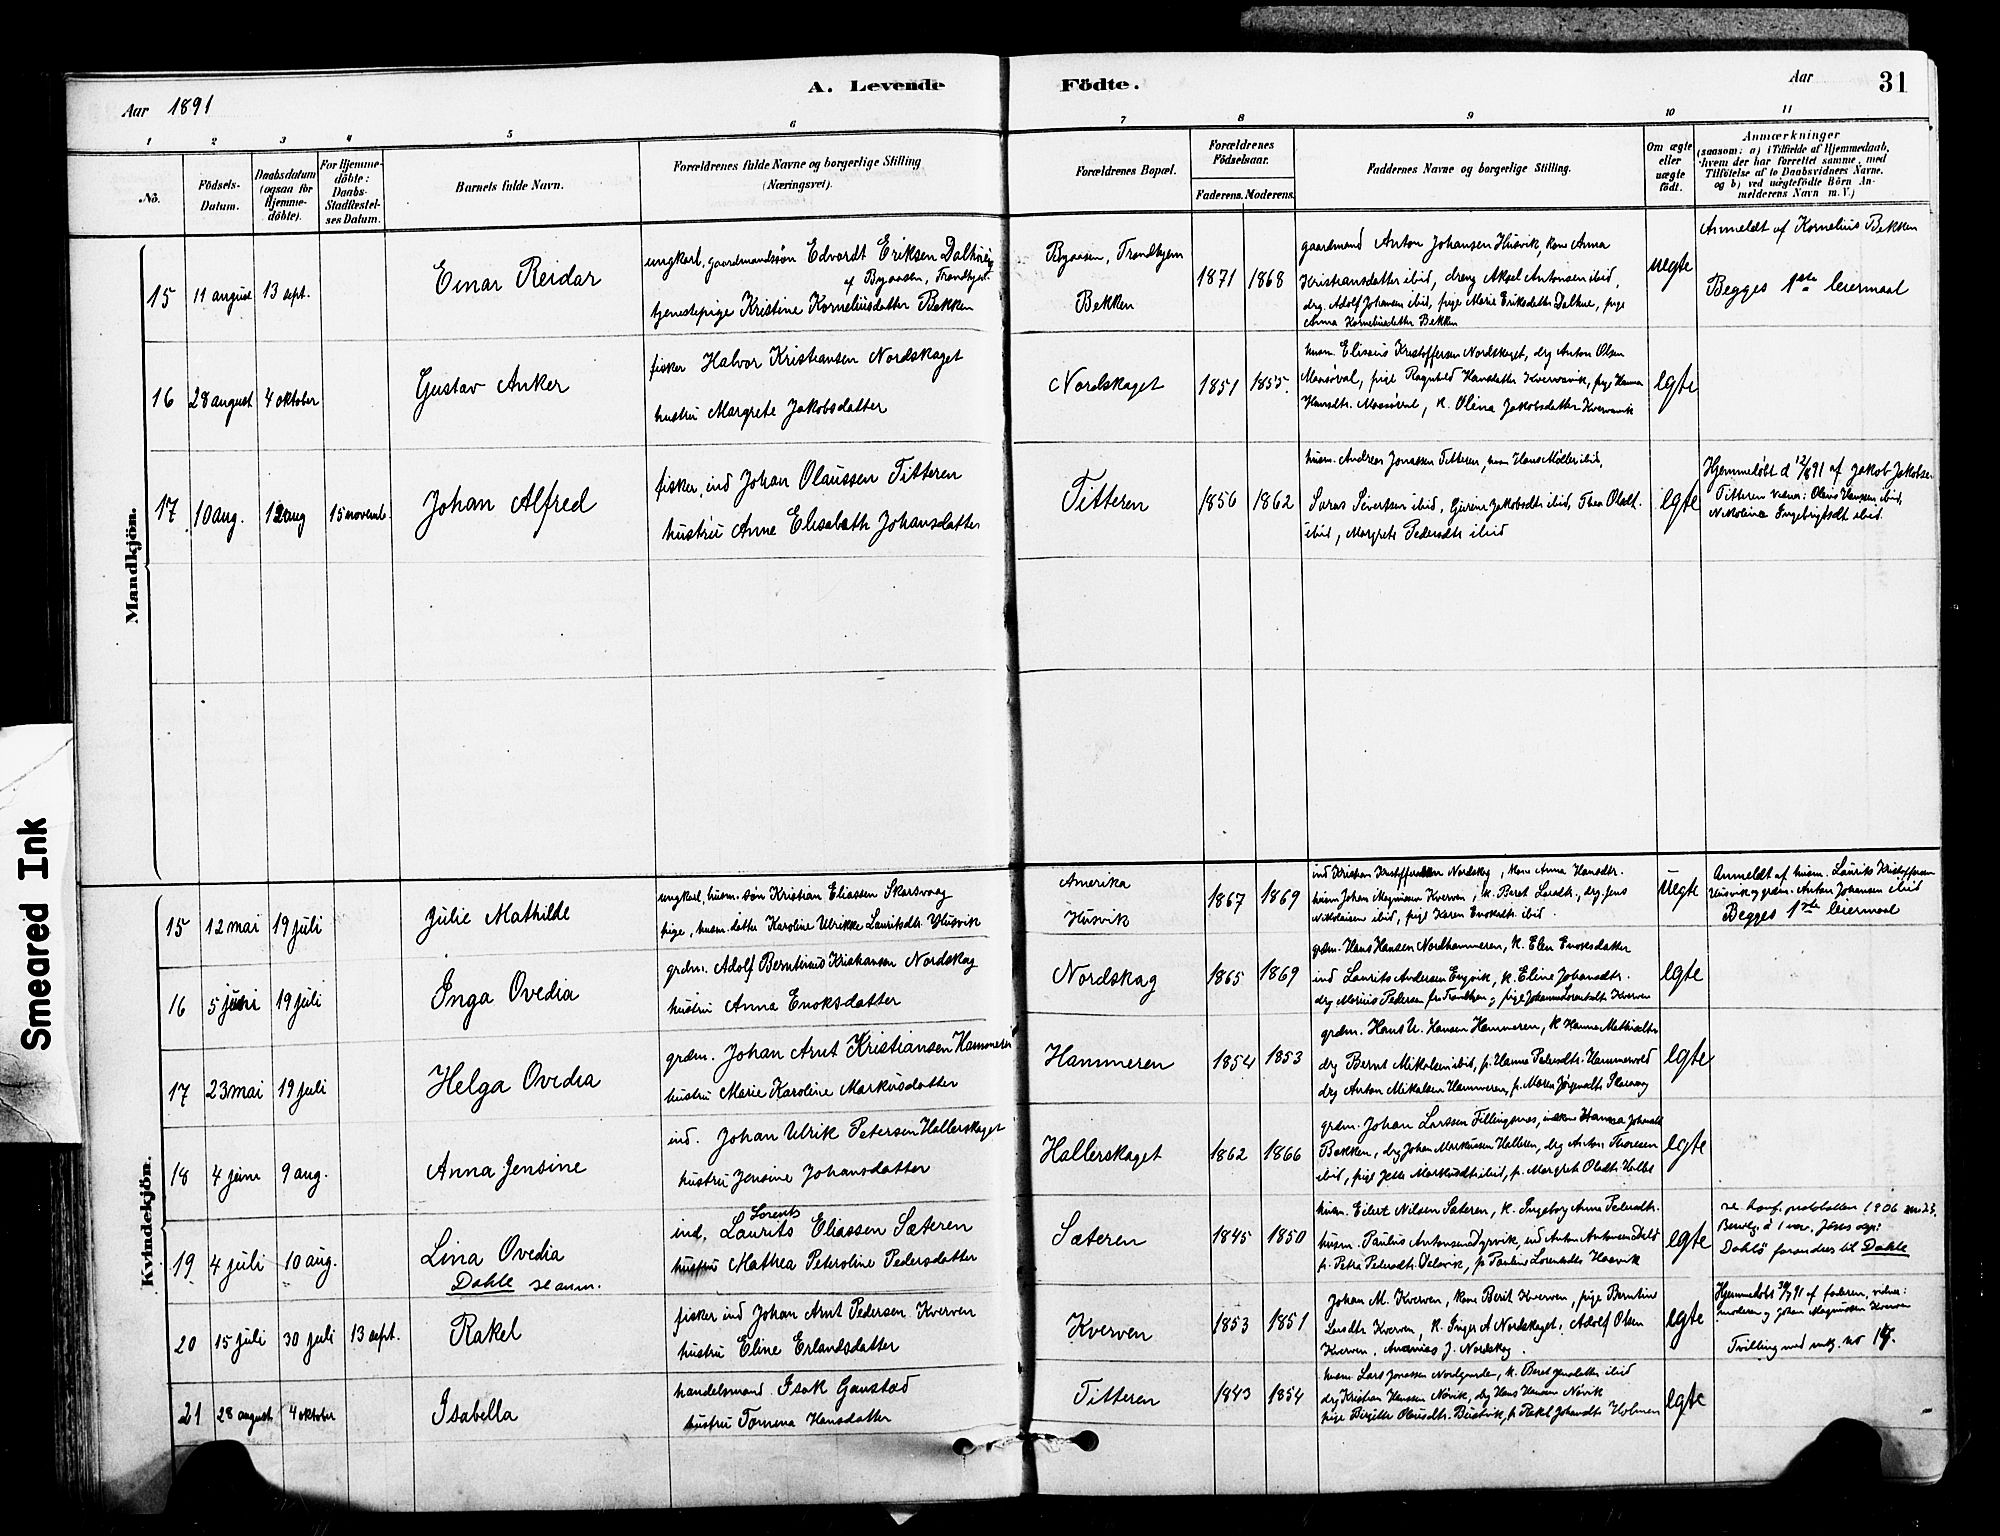 A. Levende Födte.
Aar 1891
Aar
31
1 2 3 4 5 6 7 8 9 10 11
No.
Födsels-Datum.
Daabsdatum (ogsaa for Hjemmedöbte).
For Hjemmedöbte: Daabs-Stadfæstelses Datum.
Barnets fulde Navn.
Forældrenes fulde Navne og borgerlige Stilling (Næringsvei).
Forældrenes Bopæl.
Forældrenes Födselsaar.
Faderens. Moderens.
Faddernes Navne og borgerlige Stilling.
Om ægte eller uægte födt.
Anmærkninger
(saasom: a) i Tilfælde af Hjemmedaab, hvem der har forrettet samme, med Tilföielse af to Daabsvidners Navne, og b) ved uægtefödte Börn Anmelderens Navn m. V.)
Mandkjön.
15 11 august 13 sept.
Einar Reidar
ungkarl, gaardmandssøn Edvardt Eriksen
af Byaasen, Trondhjem
tjenestepige Kristine Korneliusdatter Bekken
Byaasen, Trondhjem
Bekken
1871 1868
gaardmand Anton Johansen Husvik, kone Anna
Kristiansdatter ibid, dreng Aksel Antonsen ibid,
drg. Adolf Johansen ibid, pige Marie Eriksdatter, pige
Anna Korneliusdatter Bekken
uegte
Anmeldt af Kornelius Bekken
Begges 1ste leiermaal
16 28 august 4 oktober
Gustav Anker
fisker Halvor Kristiansen Nordskaget
hustru Margrete Jakobsdatter
Nordskaget
1851 1855.
husm. Elisæus Kristoffersen Nordskaget, drg Anton Olsen
pige Ragnhild Hansdatter Kvervavik, pige Hanna
Hansdtr., k. Olina Jakobsdatter Kvervavik
egte
17 10 aug. 12 aug 15 novemb.
Johan Alfred
fisker, ind Johan Olaussen Titteren
hustru Anne Elisabeth Johansdatter
Titteren
1856 1862
husm. Andreas Jonassen Titteren, Hans Møller ibid,
Sivertsen ibid, Jakobsdtr ibid, Thea Olsdt.
ibid, Margrete Pedersdtr ibid
egte
Hjemmedøbt d 12/8 91 af Jakob Jakobsen
Titteren vidner: Hansen ibid,
Nikoline Ingebrigtsdt ibid.
Kvindekjön.
15 12 mai 19 juli
Julie Mathilde
ungkarl, husm. søn Kristian Eliassen Skarsvaag
pige, husm. datter Karoline Ulrikke Lauritsdtr Husvik
Amerika
Husvik
1867 1869
ind Kristian Kristoffersen Nordskag, kone Anna Hansdtr.
husm Johan Magnussen Kverven, k. Beret Larsdtr, drg. Jens
Nikolaisen ibid, pige Karen Enoksdtr ibid.
uegte
Anmeldt af husm. Laurits Kristoffersen
Husvik og grdm. Anton Johansen ibid
Begges 1ste leiermaal
16 5 juni 19 juli
Inga Ovedia
grdm. Adolf Kristiansen Nordskag
hustru Anna Enoksdatter
Nordskag
1865 1869
grdm. Hans Hansen Nordhammeren, k. Elen Enoksdatter
ind Laurits Andersen, k. Eline Johansdtr.
drg Pedersen fra Trondhjem, pige Johanna Kverven
egte
17 23 mai 19 juli
Helga Ovedia
grdm. Johan Arnt Kristiansen Hammeren
hustru Marie Karoline Markusdatter
Hammeren
1854 1853
grdm. Hans U. Hansen Hammeren, k Hanna
drg Bernt Mikalsen ibid, p. Hanna Pedersdtr.
drg Anton Mikalsen Hammeren, p. Maren
egte
18 4 juni 9 aug.
Anna Jensine
ind. Johan Ulrik Petersen Hallerskaget
hustru Jensine Johansdatter
Hallerskaget
1862 1866
grdm. Johan Larssen Fillingsnes,
Bekken, drg Johan Markussen, drg Anton
ibid, pige Markusdtr ibid, p. Margret Olsdtr.
egte
19 4 juli 10 aug.
Lina Ovedia
Dahle se anm.
Lorents
ind, Laurits Eliassen Sæteren
hustru Mathea Peteroline Pedersdatter
Sæteren
1845 1850
husm. Eilert Nilsen Sæteren, k. Ingeborg Anna Pedersdtr.
husm. Paulus Antonsen, ind Anton Antonsen
p. Petra Pedersdtr., p Pauline
egte
se konf. protokollen 1906
Dahlø forandres til Dahle
20 15 juli 30 juli 13 sept.
Rakel
fisker ind Johan Arnt Pedersen Kverven
hustru Eline Erlandsdatter
Kverven
1853 1851
Johan M. Kverven, kone Berit Kverven, pige
Larsdtr Kverven, k. Inger A Nordskaget, Adolf Olsen
Kverven, Ananias J. Nordskag.
egte
Hjemmedøbt 30/7 91 af faderen, vidner:
moderen og Johan Magnussen Kverven
Tvilling med
21 28 august 4 oktober
Isabella
handelsmand Isak Gaustad
hustru Hansdatter
Titteren
1843 1854
husm. Lars Jonassen, k. Beret ibid
drg Kristian Hansen, drg Hans Hansen
pige Birgitte, p Rakel Johansdtr Holmen
egte
Smeared Ink